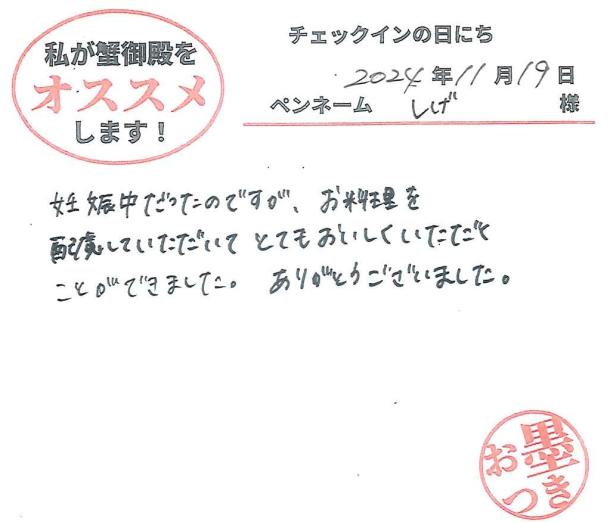 私が蟹御殿を
オススメ
します！
チェックインの日にち
2024年11月19日
ペンネーム しげ 様
妊娠中だったのですが、お料理を
配慮していただいて とてもおいしくいただく
ことができました。 ありがとうございました。
お墨
つき